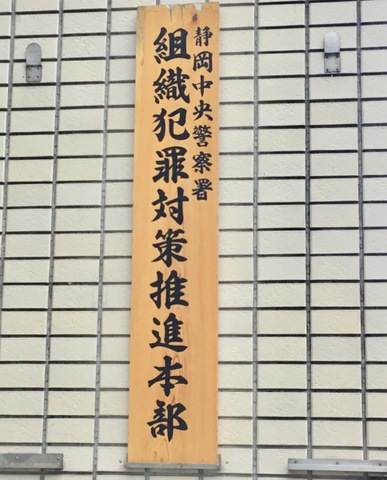 静岡中央警察署
組織犯罪対策推進本部